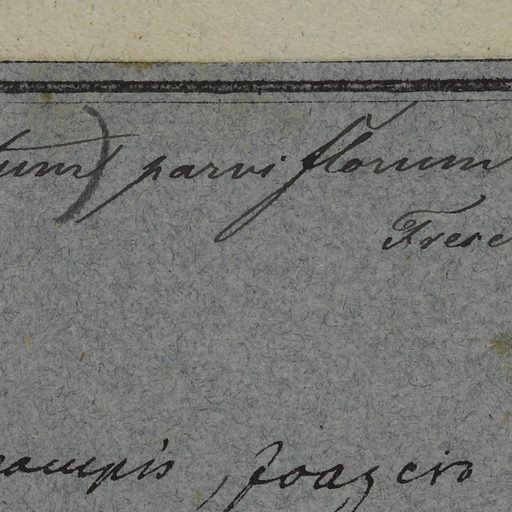 tum) parviflorum
Frese
campis, Joazeiro